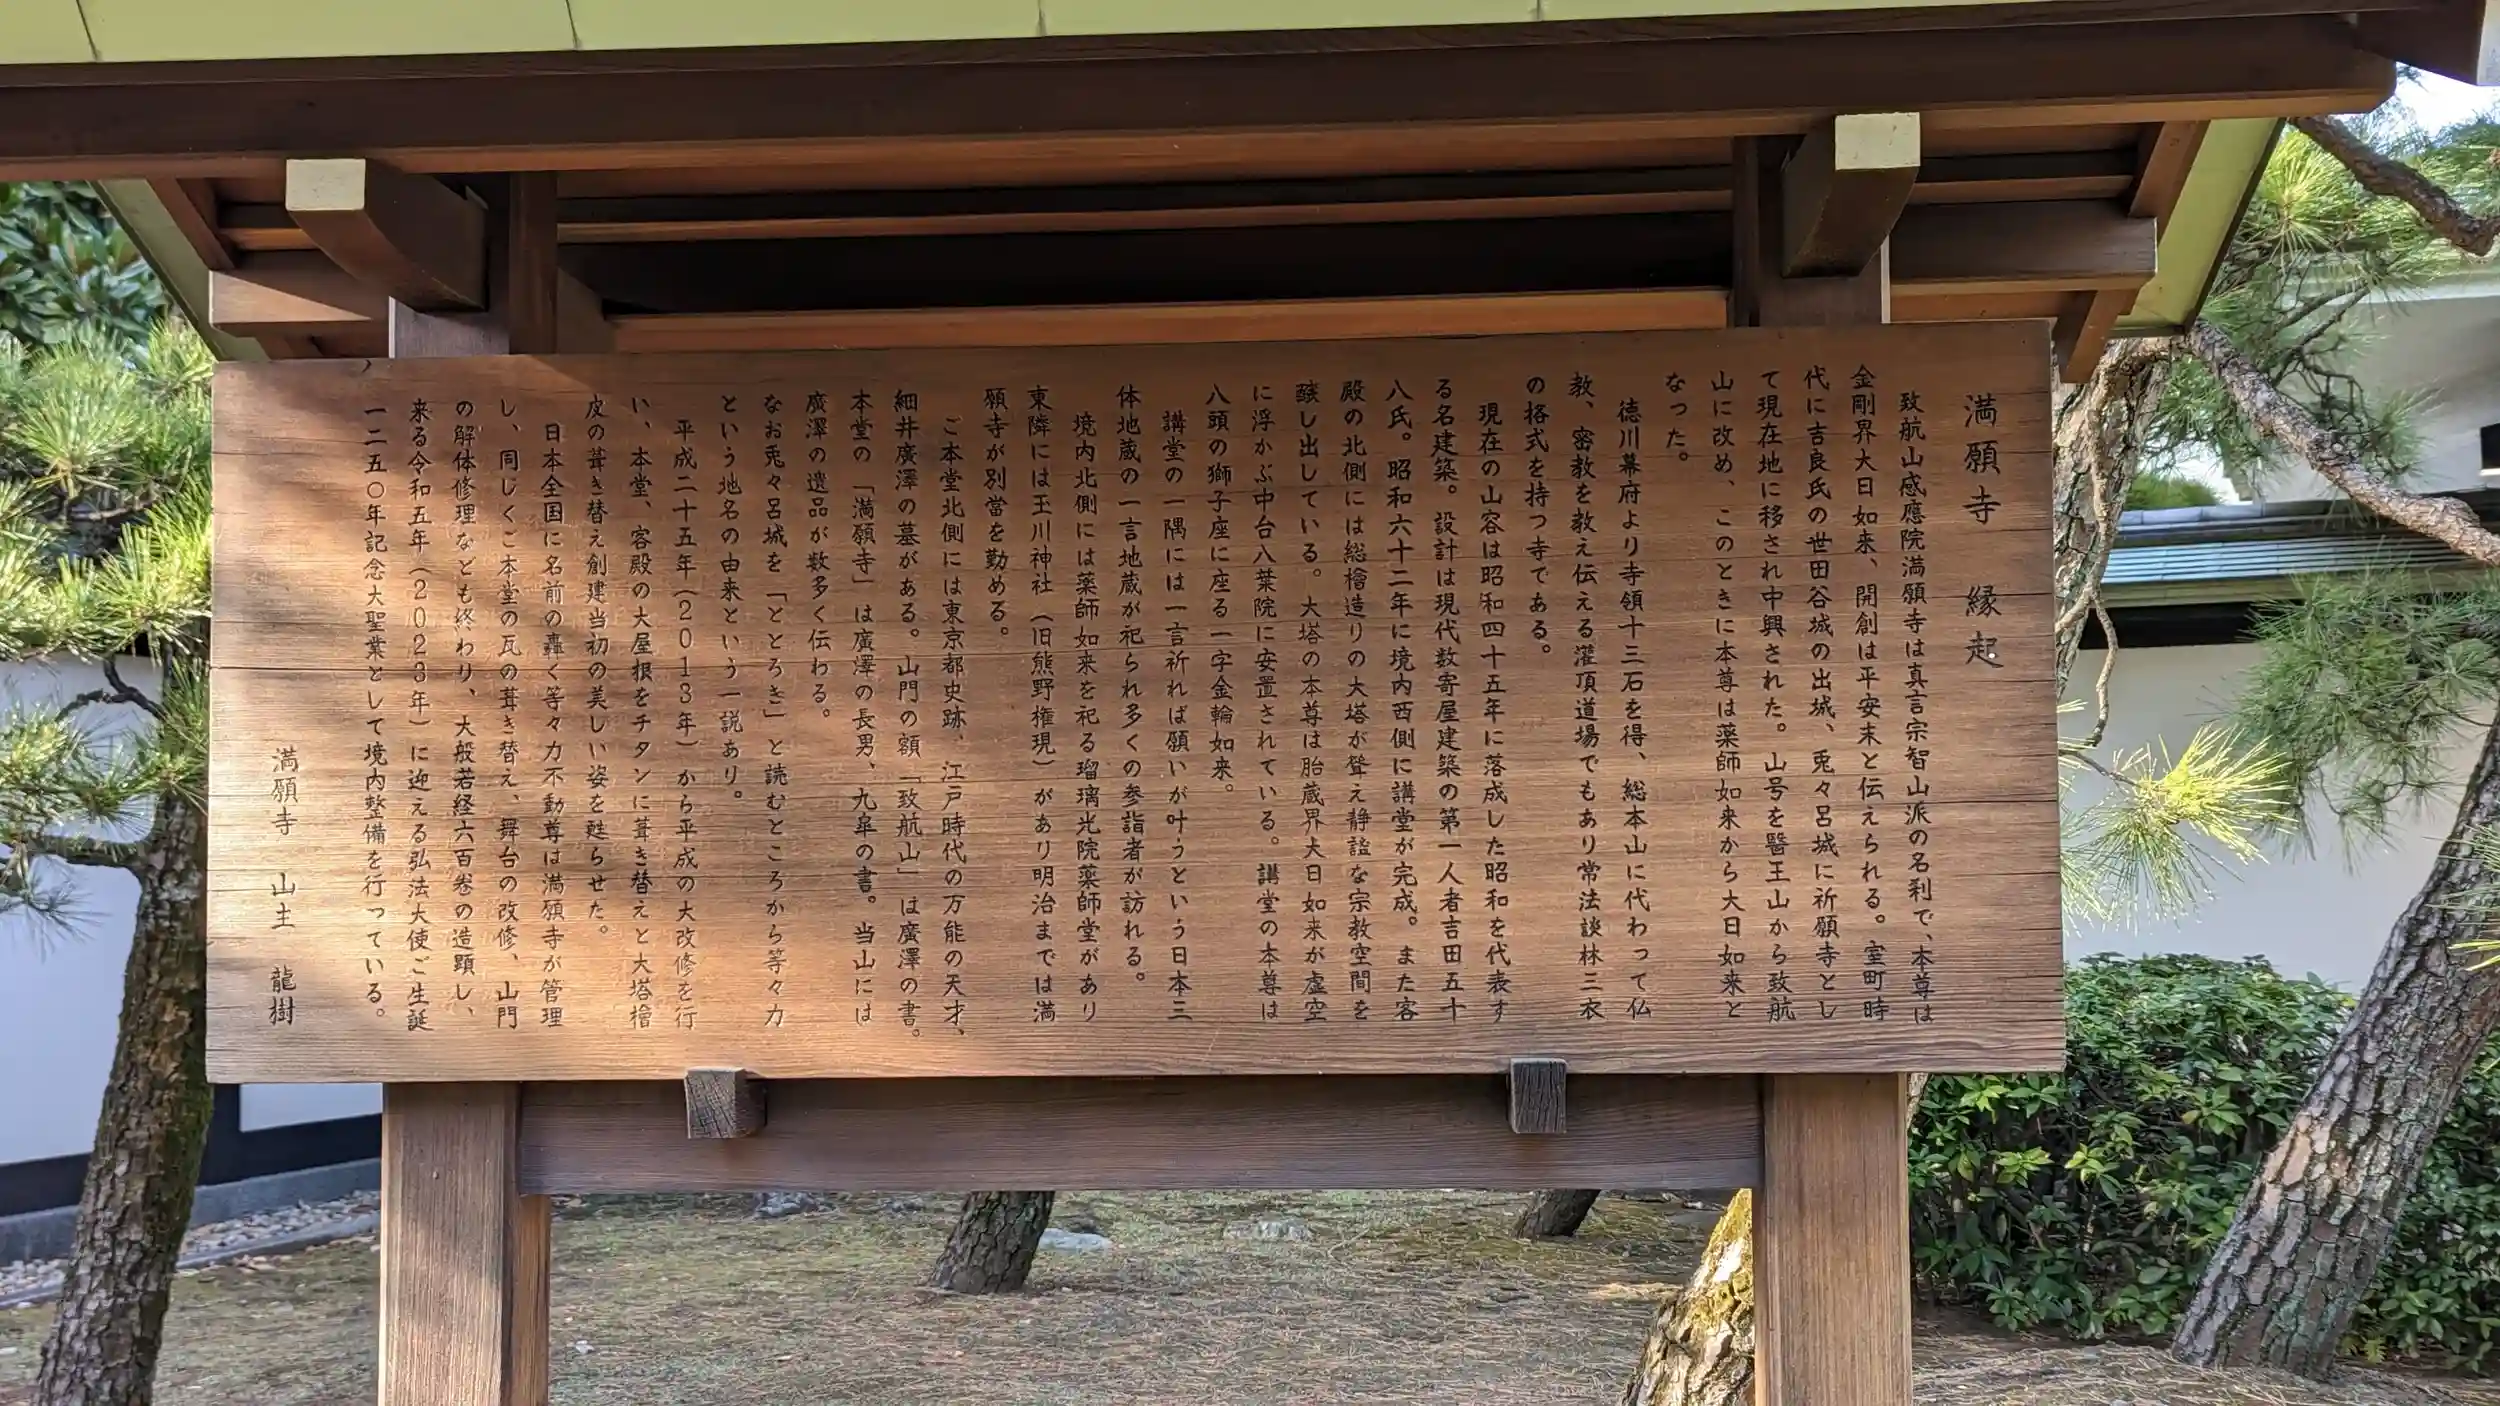 満願寺　縁起
致航山感應院満願寺は真言宗智山派の名刹で、本尊は
金剛界大日如来、開創は平安末と伝えられる。室町時
代に吉良氏の世田谷城の出城、兎々呂城に祈願寺とし
て現在地に移され中興された。山号を醫王山から致航
山に改め、このときに本尊は薬師如来から大日如来と
なった。
徳川幕府より寺領十三石を得、総本山に代わって仏
教、密教を教え伝える灌頂道場でもあり常法談林三衣
の格式を持つ寺である。
現在の山容は昭和四十五年に落成した昭和を代表す
る名建築。設計は現代数寄屋建築の第一人者吉田五十
八氏。昭和六十二年に境内西側に講堂が完成。また客
殿の北側には総檜造りの大塔が聳え静謐な宗教空間を
醸し出している。大塔の本尊は胎蔵界大日如来が虚空
に浮かぶ中台八葉院に安置されている。講堂の本尊は
八頭の獅子座に座る一字金輪如来。
講堂の一隅には一言祈れば願いが叶うという日本三
体地蔵の一言地蔵が祀られ多くの参詣者が訪れる。
境内北側には薬師如来を祀る瑠璃光院薬師堂があり
東隣には玉川神社（旧熊野権現）があり明治までは満
願寺が別當を勤める。
ご本堂北側には東京都史跡、江戸時代の万能の天才、
細井廣澤の墓がある。山門の額「致航山」は廣澤の書。
本堂の「満願寺」は廣澤の長男、九皐の書。当山には
廣澤の遺品が数多く伝わる。
なお兎々呂城を「ととろき」と読むところから等々力
という地名の由来という一説あり。
平成二十五年（2013年）から平成の大改修を行
い、本堂、客殿の大屋根をチタンに葺き替えと大塔檜
皮の葺き替え創建当初の美しい姿を甦らせた。
日本全国に名前の轟く等々力不動尊は満願寺が管理
し、同じくご本堂の瓦の葺き替え、舞台の改修、山門
の解体修理なども終わり、大般若経六百巻の造顕し、
来る令和五年（2023年）に迎える弘法大使ご生誕
一二五〇年記念大聖業として境内整備を行っている。
満願寺　山主　龍樹